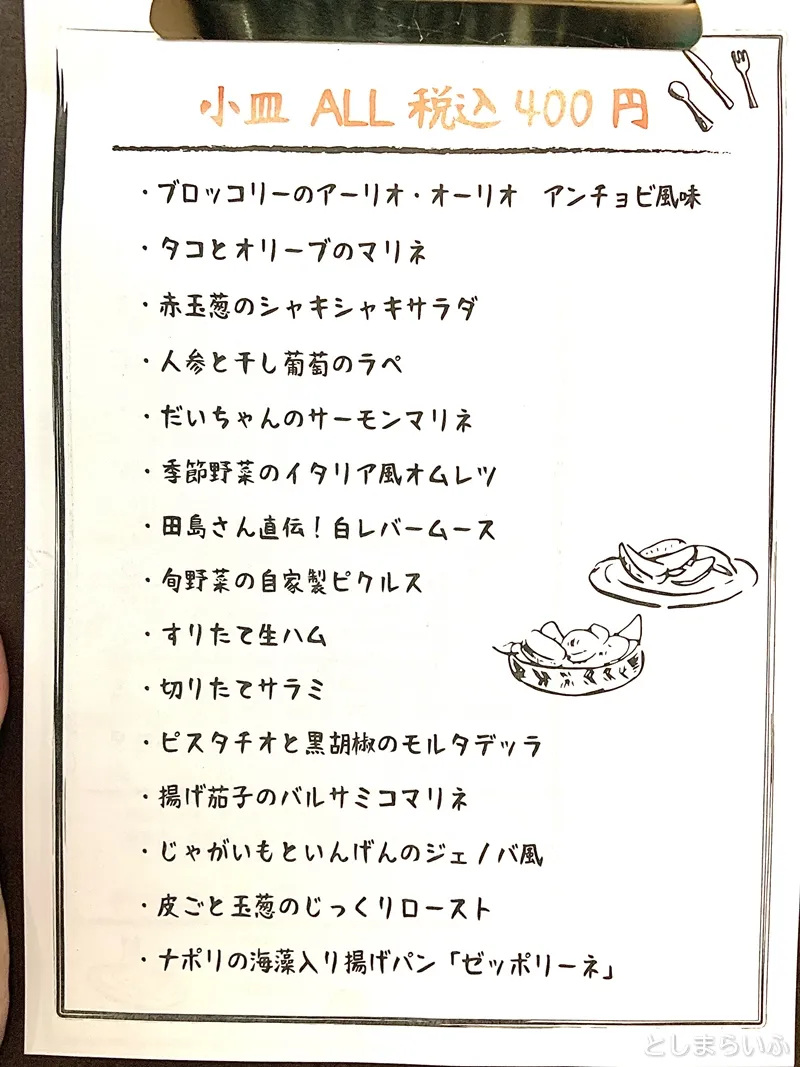 小皿 ALL 税込 400 円
・ブロッコリーのアーリオ・オーリオ　アンチョビ風味
・タコとオリーブのマリネ
・赤玉葱のシャキシャキサラダ
・人参と干し葡萄のラペ
・だいちゃんのサーモンマリネ
・季節野菜のイタリア風オムレツ
・田島さん直伝！白レバームース
・旬野菜の自家製ピクルス
・すりたて生ハム
・切りたてサラミ
・ピスタチオと黒胡椒のモルタデッラ
・揚げ茄子のバルサミコマリネ
・じゃがいもといんげんのジェノバ風
・皮ごと玉葱のじっくりロースト
・ナポリの海藻入り揚げパン「ゼッポリーネ」
としまらいふ